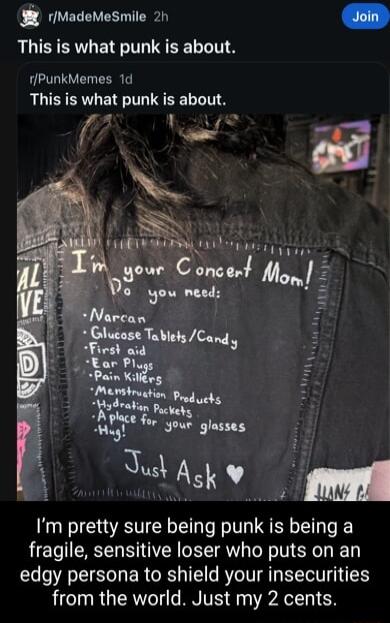 r/MadeMeSmile 2h
Join
This is what punk is about.
r/PunkMemes 1d
This is what punk is about.
AL
VE
D
I'm your Concert Mom!
Do you need:
•Narcan
•Glucose Tablets/Candy
•First aid
•Ear Plugs
•Pain Killers
•Menstruation Products
•Hydration Packets
•A place for your glasses
•Hug!
Just Ask
HANS
I'm pretty sure being punk is being a
fragile, sensitive loser who puts on an
edgy persona to shield your insecurities
from the world. Just my 2 cents.